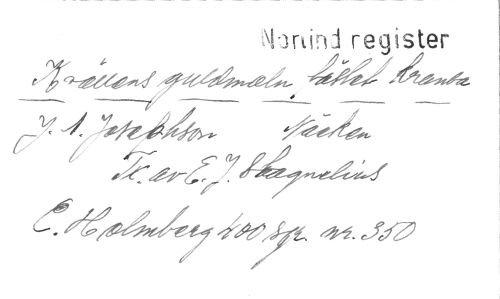 Nornind register
Kvällens guldmoln fästet kransa
J. A. Josephson Näcken
Tx. av E. J. Stagnelius
C. Holmberg 400 sgr. nr. 350